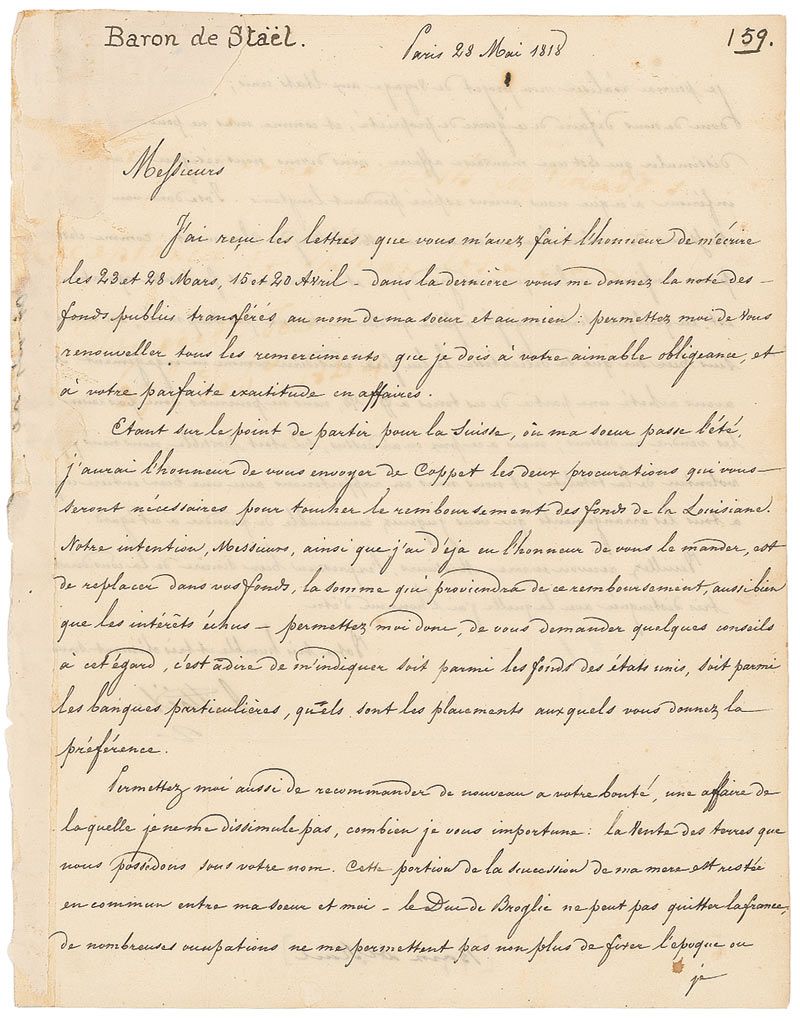 Baron de Staël.
Paris 28 Mai 1818
159.
Messieurs
J'ai reçu les lettres que vous m'avez fait l'honneur de m'écrire
les 23 et 28 Mars, 15 et 20 Avril - dans la dernière vous me donnez la note des -
fonds publics transférés au nom de ma soeur et au mien : permettez moi de vous
renouveller tous les remerciments que je dois à votre aimable obligeance, et
à votre parfaite exactitude en affaires.
Etant sur le point de partir pour la Suisse, où ma soeur passe l'été,
j'aurai l'honneur de vous envoyer de Coppet les deux procurations qui vous -
seront nécessaires pour toucher le remboursement des fonds de la Louisiane.
Notre intention, Messieurs, ainsi que j'ai d'éja eu l'honneur de vous le mander, est
de replacer dans vos fonds, la somme qui proviendra de ce remboursement, aussi bien
que les intérêts échus - permettez moi donc, de vous demander quelques conseils
à cet égard, c'est adire de m'indiquer soit parmi les fonds des états unis, soit parmi
les banques particulières, quels sont les placements auxquels vous donnez la
préférence.
Permettez moi aussi de recommander de nouveau a votre bonté, une affaire de
laquelle je ne me dissimule pas, combien je vous importune : la vente des terres que
nous possédons sous votre nom. Cette portion de la succession de ma mere est restée
en commun entre ma soeur et moi - le Duc de Broglie ne peut pas quitter la france,
de nombreuses occupations ne me permettent pas non plus de fixer l'époque ou
je